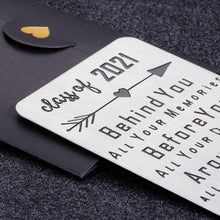 class of 2021
Behind You
All Your Memories
Before You
All Your